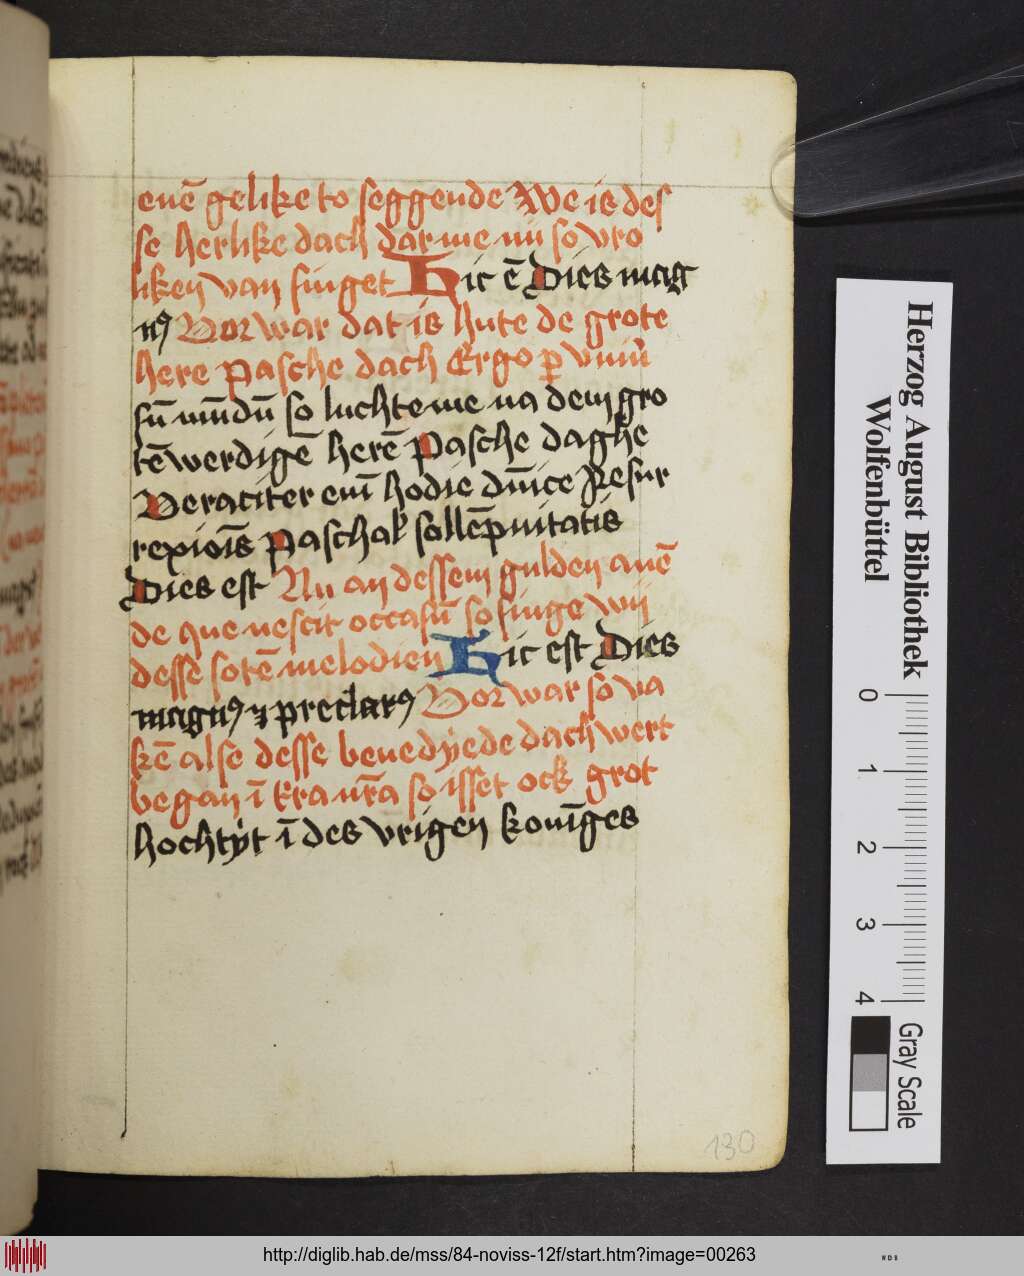 euē gelike to seggende We is des
se herlike dach dar me nu so vro
liken van singet Hic ē Dies mag
nꝰ Vor war dat is hute de grote
here pasche dach Ergo ꝑ vniū
sū mūdū so luchte me na dem gro
tē werdigē herē pasche daghe
Veraciter em̄ hodie dn̄ice Resur
rexiōis paschal sollēpnitatis
Dies est Nu an dessem gulden auē
de que nescit occasū so singe wij
desse sotē melodien Hic est Dies
magnꝰ ⁊ preclarꝰ Vor war so va
kē alse desse benedyede dach wert
began ī so isset ock grot
hochtyt ī des vrigen konīges
130
Herzog August Bibliothek
Wolfenbüttel
0
1
2
3
4
Gray Scale
http://diglib.hab.de/mss/84-noviss-12f/start.htm?image=00263